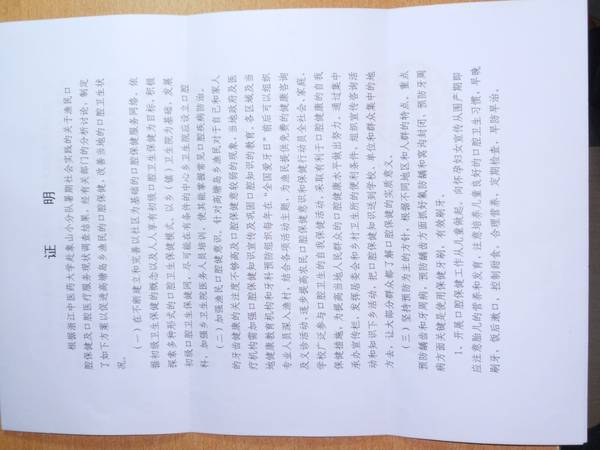 证 明
根据浙江中医药大学赴象山小分队暑期社会实践的关于渔民口
腔保健及口腔医疗服务现状调查结果，经有关部门的分析讨论，制定
了如下方案以促进高塘岛乡渔民的口腔保健，改善当地的口腔卫生状
况。
（一）在不断建立和完善以社区为基础的口腔保健服务网络，依
据初级卫生保健的概念以及人人享有初级口腔卫生保健为目标，积极
探索多种形式的口腔卫生保健模式。以乡（镇）卫生院为基础，发展
初级口腔卫生保健网，尽可能在有条件的中心乡卫生院应设立口腔
科，加强乡卫生院医务人员培训，使其能掌握常见口腔疾病防治。
（二）加强渔民口腔健康意识。针对高塘岛乡渔民对于自己和家人
的牙齿健康的关注度不够高及口腔保健意较弱的现象，当地政府及医
疗机构需加强口腔保健知识宣传及巩固口腔知识的教育。各区域及当
地健康教育机构和牙科预防组织每年在“全国爱牙日”前后可以组织
专业人员深入渔村，结合各项活动主题，为渔民提供免费的健康咨询
及义诊活动，逐步提高农民口腔保健意识和保健行动员全社会、家庭、
学校广泛参与口腔卫生的自我保健活动，采取有利于口腔健康的自我
保健措施，为提高当地人民群众的口腔健康水平做出努力。通过集中
承办宣传栏，发挥居委会和乡村卫生所的便利条件，组织宣传咨询活
动和知识下乡活动，把口腔保健知识送到学校、单位和群众集中的地
方去，让大部分群众都了解口腔保健的实质意义。
（三）坚持预防为主的方针，根据不同地区和人群的特点，重点
预防龋齿和牙周病，预防龋齿方面抓好氟防龋和窝沟封闭，预防牙周
病方面关键是使用保健牙刷，有效刷牙。
1、开展口腔保健工作从儿童做起。向怀孕妇女宣传从围产期即
应注意胎儿的营养和发育，注意培养儿童良好的口腔卫生习惯，早晚
刷牙，饭后漱口，控制甜食，合理营养，定期检查，早防早治。